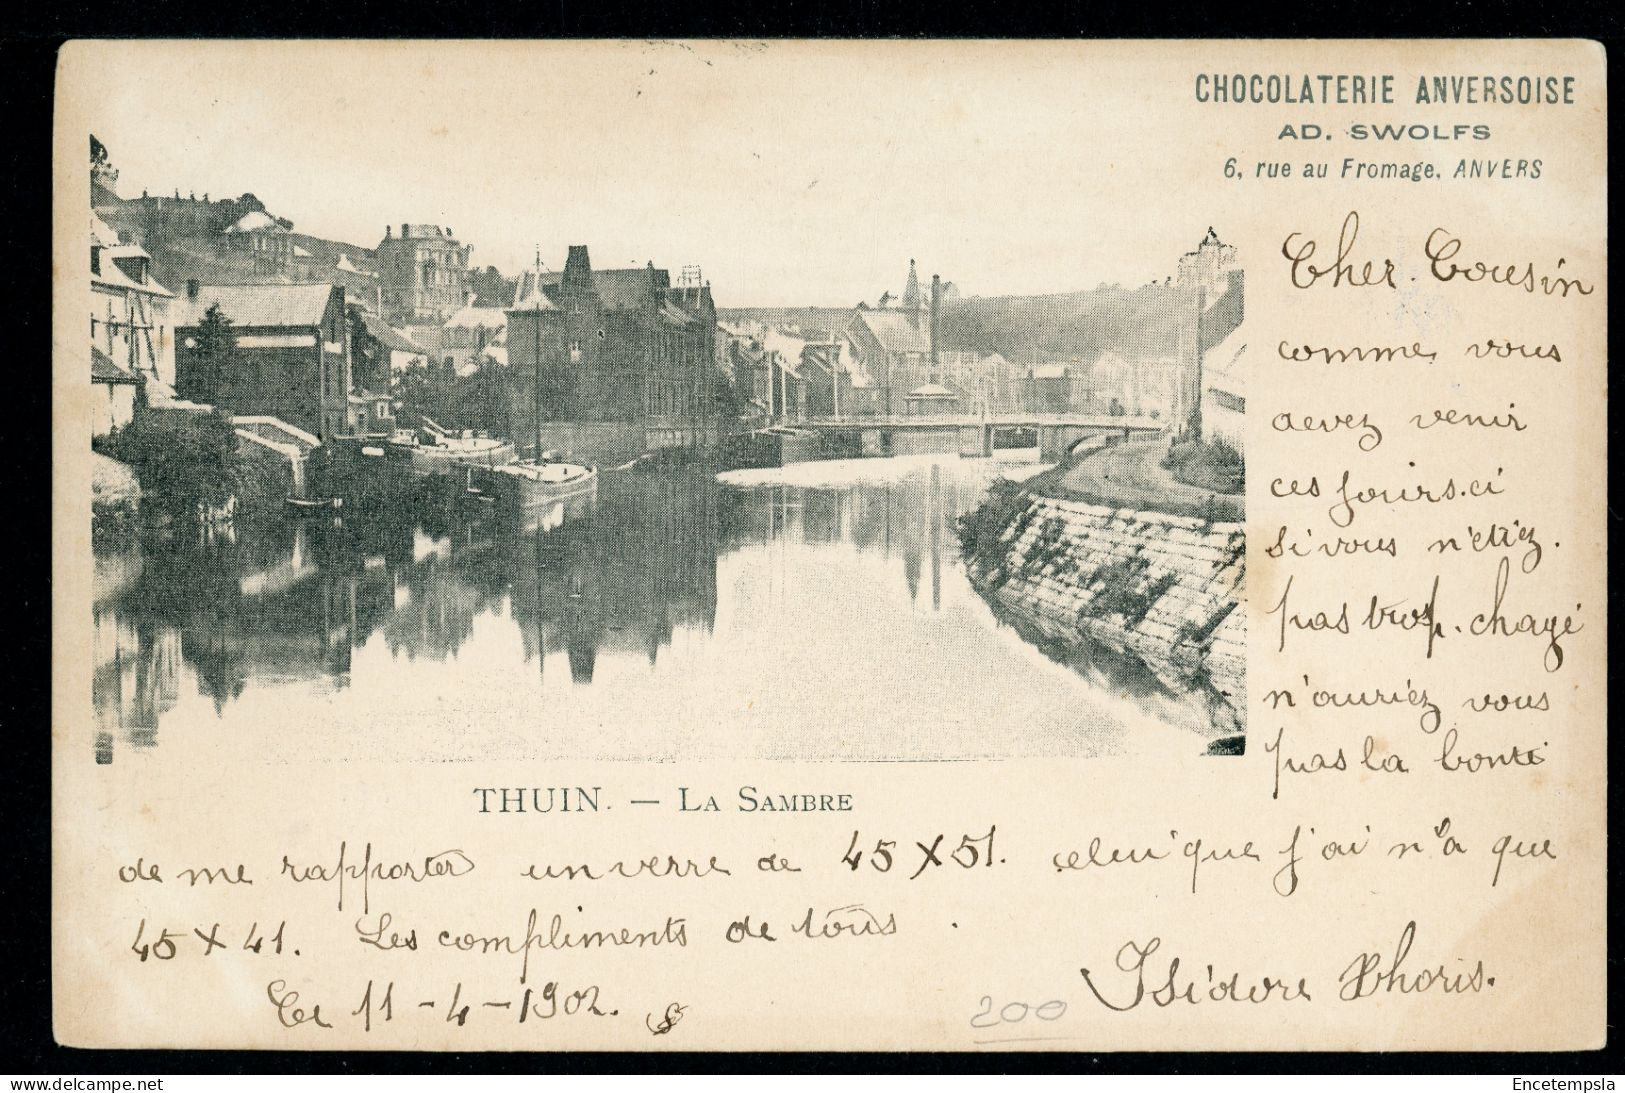 CHOCOLATERIE ANVERSOISE
AD. SWOLFS
6, rue au Fromage, ANVERS
Cher Cousin
comme vous
devez venir
ces jours.ci
si vous n'etiez.
pas trop. chagé
n'auriez vous
pas la bonté
THUIN. — LA SAMBRE
de me rapporter un verre de 45 X 51. celui que j'ai n'a que
45 X 41. Les compliments de tous.
Isidore
Le 11-4-1902.
200
delcampe.net
Encetempsla